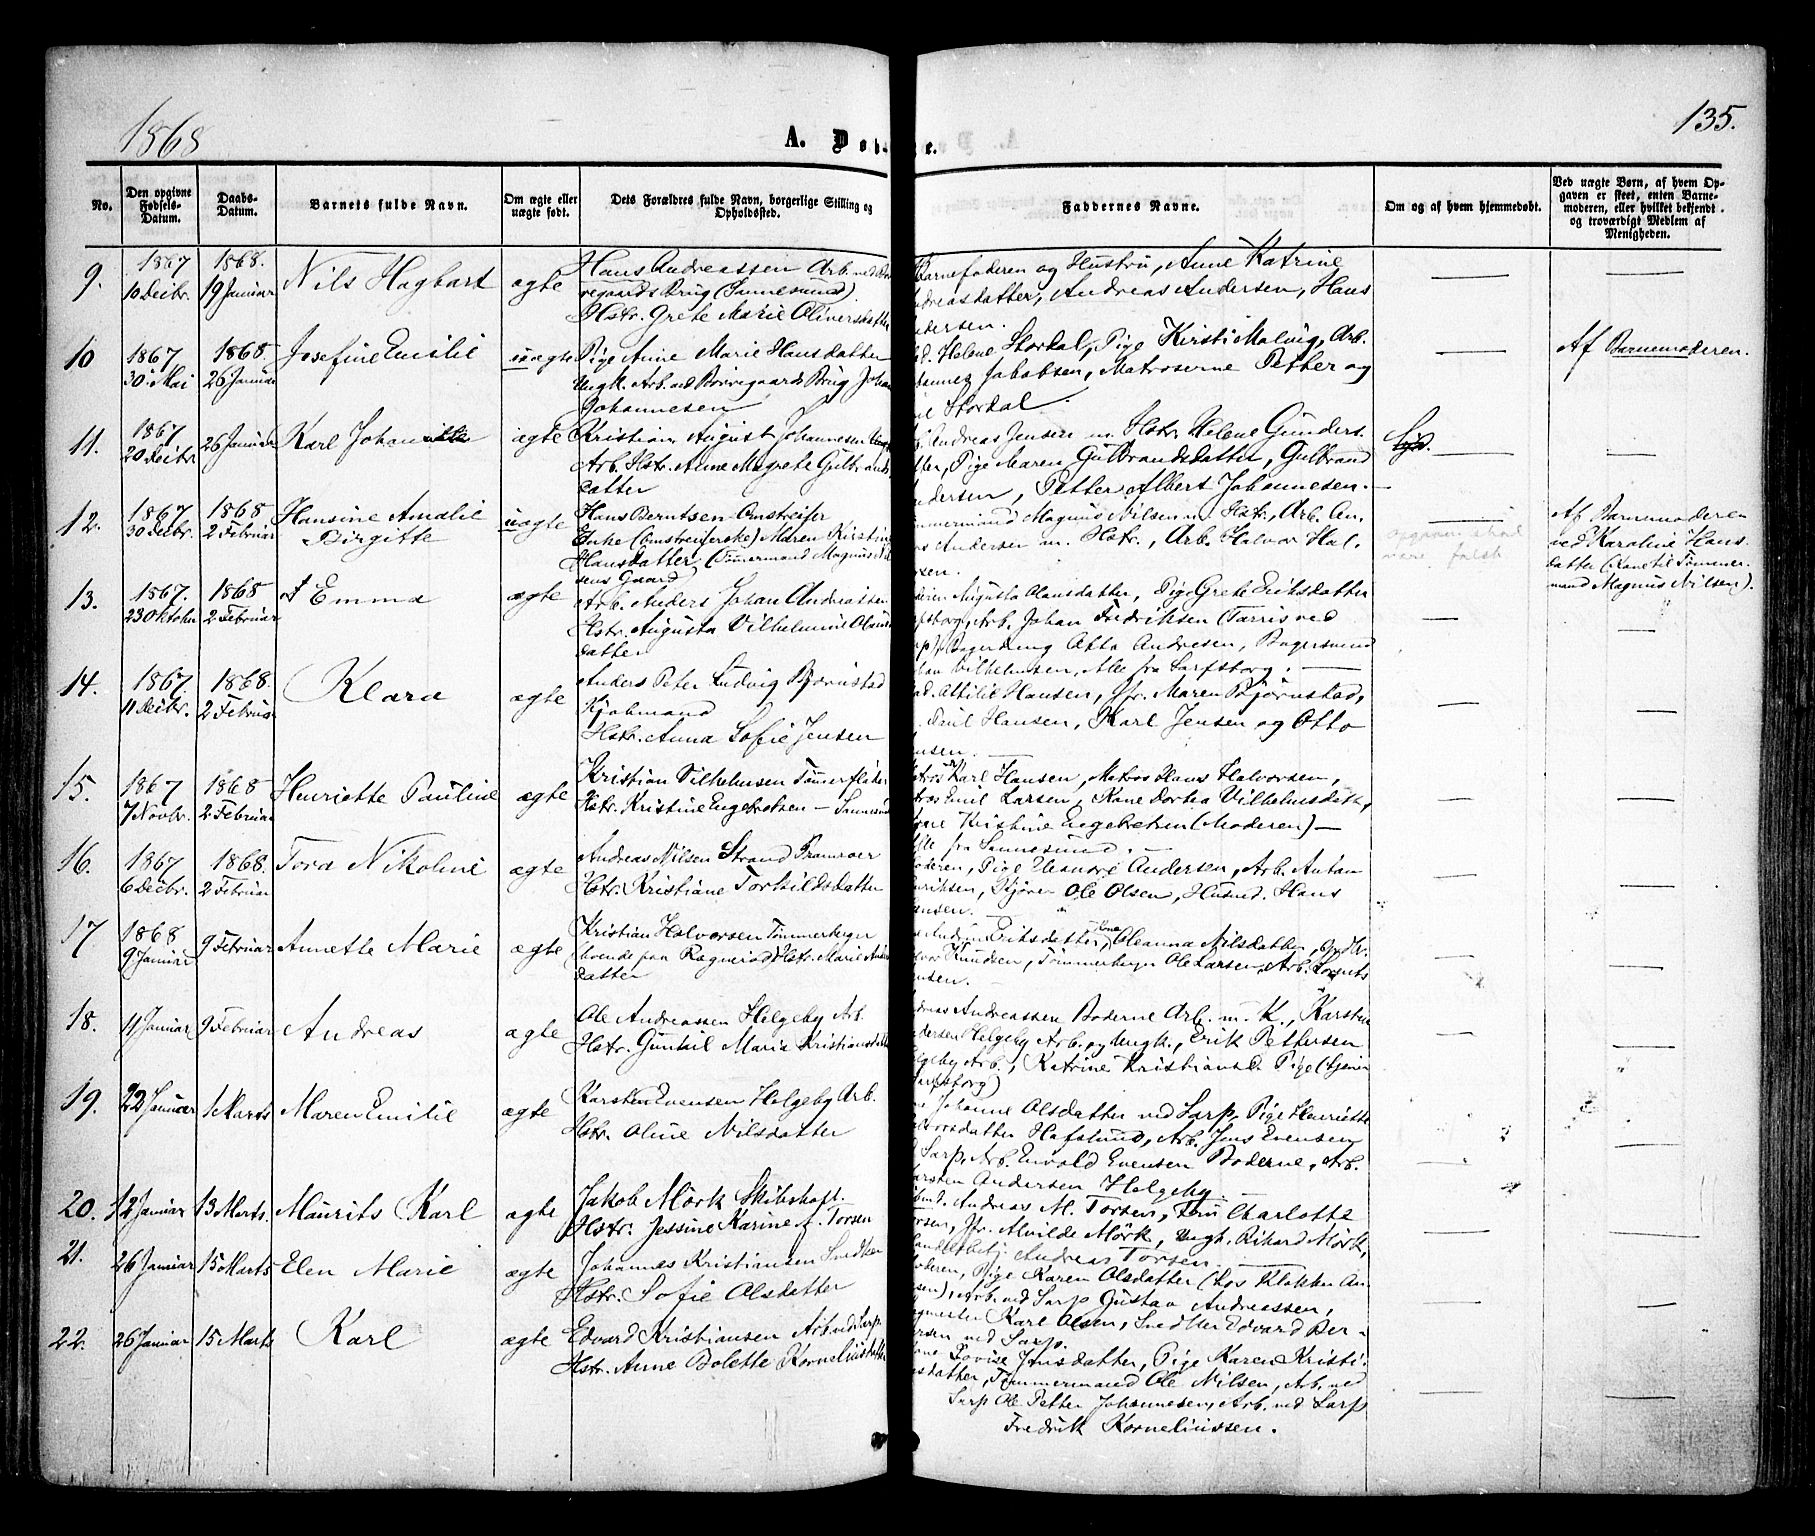 1868
A. Døb-
te.
135.
No.
Den opgivne Fødsels-Datum.
Daabs-Datum.
Barnets fulde Navn.
Om ægte eller uægte født.
Dets Forældres fulde Navn, borgerlige Stilling og Opholdssted.
Faddernes Navne.
Om og af hvem hjemmedøbt.
Ved uægte Børn, af hvem Opgaven er skeet, enten Barnemoderen, eller hvilket bekjendt og troværdigt Medlem af Menigheden.
9. 1867 10 Decbr. 1868. 19 Januar Nils Hagbart ægte
Hans Andreassen Arb. ved Bor-
regaards Brug (Sannesund)
Hstr. Grete Marie Oliversdatter
Barnefaderen og Hustru, Anne Katrine
Andreasdatter, Andreas Andersen, Hans
Andersen.
10 1867. 30 Mai 1868. 26 Januar Josefine Emilie uægte
Pige Anne Marie Hansdatter
Ungk. Arb. ved Borregaards Brug Johan
Johannesen
Helene Stordal, Pige Kirsti Malvig, Arb.
Jakobsen, Matroserne Petter og
Stordal.
Af Barnemoderen.
11. 1867. 20 Decbr 26 Januar Karl Johan ægte
Kristian August Johannesen
Arb. Hstr. Anne Magrete Gulbrands
datter
Andreas Jensen m. Hstr. Helene Gunders-
datter, Pige Maren Gulbrandsdatter, Gulbrand
Andersen, Petter Albert Johannesen.
12. 1867 30 Decbr. 1868 2 Februar Hansine Amalie
Birgitte uægte
Hans Berntsen Omstreifer
Enke (Omstreiferske) Maren Kirstine
Hansdatter (Tømmermand Magnus Nil
sens Gaard)
Tømmermand Magnus Nilsen m. Hstr., Arb. An-
Andersen m. Hstr., Arb. Halvor Hal-
vorsen.
opgiven skal
være falsk
Af Barnemoderen
ved Karoline Hans-
datter (Kone til Tømmer-
mand Magnus Nilsen).
13. 1867. 23 Oktobr 1868 2 Februar Emma ægte
Arb. Anders Johan Andreassen
Hstr. Augusta Vilhelmine Olaus
datter
Moderen Augusta Olausdatter, Pige Grete Eriksdatter
Sarpsborg, Arb. Johan Fredriksen (Tarris ved
Sarp), Bagerdreng Otto Andresen, Bagersvend
Vilhelmsen, Alle fra Sarpsborg.
14. 1867. 11 Decbr. 1868. 2 Februar Klara ægte
Anders Peter Ludvig Bjørnstad
Kjøbmand
Hstr. Anna Sofie Jensen
Attilie Hansen, Jfr. Maren Bjørnstad,
Emil Hansen, Karl Jensen og Otto
Jensen.
15. 1867 7 Novbr. 1868 2 Februar Henriette Pauline ægte
Kristian Vilhelmsen Tømmerfløter
Hstr. Kristine Engebretsen – Sannesund
Matros Karl Hansen, Matros Hans Halvorsen,
Matros Emil Larsen, Kone Dortea Vilhelmsdatt.,
Kone Kristine Engebretsen (Moderen) –
Alle fra Sannesund.
16. 1867 6 Decbr. 1868. 2 Februar Tora Nikoline ægte
Andreas Nilsen Strand Pramroer
Hstr. Kristiane Torkildsdatter
Moderen, Pige Eleonore Andersen, Arb. Anton
Henriksen, Ole Olsen, Husmd. Hans
Hansen.
17 1868 9 Januar 9 Februar Annette Marie ægte
Kristian Halvorsen Tømmerberger
(boende paa Ragnerød) Hstr. Marie Anders
datter
Eriksdatter, Kone Oleanna Nilsdatter,
Halvor Knudsen, Tømmerberger Ole Larsen, Arb. Lorents
18. 11 Januar 9 Februar Andreas ægte
Ole Andreassen Helgeby Arb.
Hstr. Gunhil Maria Kristiansdatter
Andreas Andreassen Boderne Arb. m. K., Karsten
Andersen Helgeby Arb. og Ungk., Erik Pettersen
Helgeby Arb., Katrine Kristiansd. Pige (tjener
Sarpsborg)
19. 22 Januar 1 Marts Maren Emilie ægte
Karsten Evensen Helgeby Arb.
Hstr. Oline Nilsdatter
Johanne Olsdatter ved Sarp, Pige Henriette
Halvorsdatter Hafslund, Arb. Jens Evensen
Sarp, Arb. Envold Evensen Boderne, Arb.
Karsten Andersen Helgeby.
20. 12 Januar 13 Marts. Maurits Karl ægte
Jakob Mørk Skibskapt.
Hstr. Jessine Karine f. Torsen
Andreas M. Torsen, Fru Charlotte
Torsen, Jfr. Alvilde Mörk, Ungk. Rikard Mörk,
Handelsbetj. Andreas Torsen.
21. 26 Januar 15 Marts Elen Marie ægte
Johannes Kristiansen Snedker
Hstr. Sofie Olsdatter
Moderen, Pige Karen Olsdatter (hos Klokker An-
sen), Arb. ved Sarp Gustav Andreassen,
Karl Olsen, Snedker Edvard Per-
sen ved Sarp.
22. 26 Januar 15 Marts Karl ægte
Edvard Kristiansen Arb. ved Sarp.
Hstr. Anne Bolette Korneliusdatter
Kone Lovise Jensdatter, Pige Karen Kristi-
datter, Tømmermand Ole Nilsen, Arb. ved
Sarp Ole Petter Johannesen, Arb. ved Sarp
Fredrik Korneliussen.